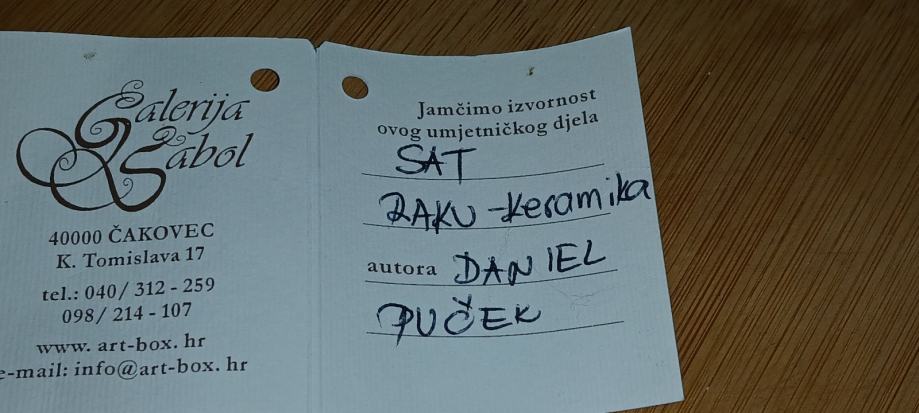 Galerija
Sabol
40000 ČAKOVEC
K. Tomislava 17
tel.: 040/ 312 - 259
098/ 214 - 107
www. art-box. hr
e-mail: info@art-box. hr
Jamčimo izvornost
ovog umjetničkog djela
SAT
RAKU - keramika
autora DANIEL
PUČEK